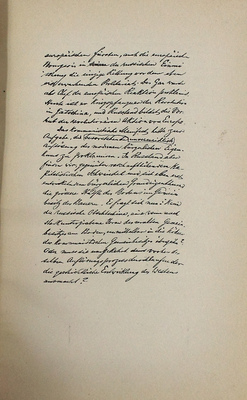 europäischen Fürsten, auch die europäischen
Bourgeois in der russischen Einmi-
schung die einzige Rettung vor dem eben
erst erwachenden Proletariat. Der Zar wurde
als Chef der europäischen Reaktion proklamirt.
Heute ist er Kriegsgefangner der Revolution
in Gatschina, und Russland bildet die Vor-
hut der revolutionären Aktion von Europa.
Das kommunistische Manifest hatte zur
Aufgabe, die bevorstehende
Auflösung des modernen bürgerlichen Eigen-
tums zu proklamiren. In Russland aber
finden wir, gegenüber rasch aufblühendem ka-
pitalistischen Schwindel und sich eben erst
entwickelndem bürgerlichen Grundeigentum,
die grössere Hälfte des Bodens im Gemein-
besitz der Bauern. Es fragt sich nun: Kann
die russische Obschtschina, eine wenn auch
stark untergrabene Form des uralten Gemein-
besitzes am Boden, unmittelbar in die höhere
des kommunistischen Gemeinbesitzes übergehn?
Oder muss sie umgekehrt vorher den-
selben Auflösungsprozess durchlaufen, der
die geschichtliche Entwicklung des Westens
ausmacht?